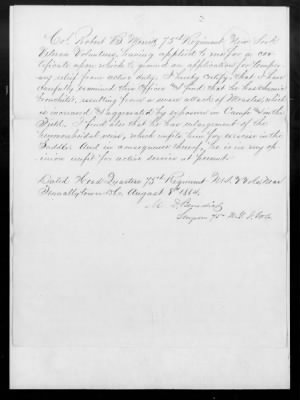 2
Col. Robert B. Merritt 75th Regiment New York
Veteran Volunteers, having applied to me for a cer-
tificate upon which to ground an application for tempor-
ary relief from active duty, I hereby certify that I have
carefully examined this Officer & find that he has chronic
bronchitis, resulting from a severe attack of Measles, which
is increased & aggravated by exposure in Camp & in the
Field. I find also that he has enlargement of the
hemorrhoidal veins, which unfits him for exercise in the
Saddle. And in consequence thereof, he is in my op-
inion unfit for active service at present.
Dated Head Quarters 75th Regiment N.Y.S. Vols near
Tennallytown D.C. August 8th 1864.
M. D. Benedict
Surgeon 75th N.Y.S. Vols.